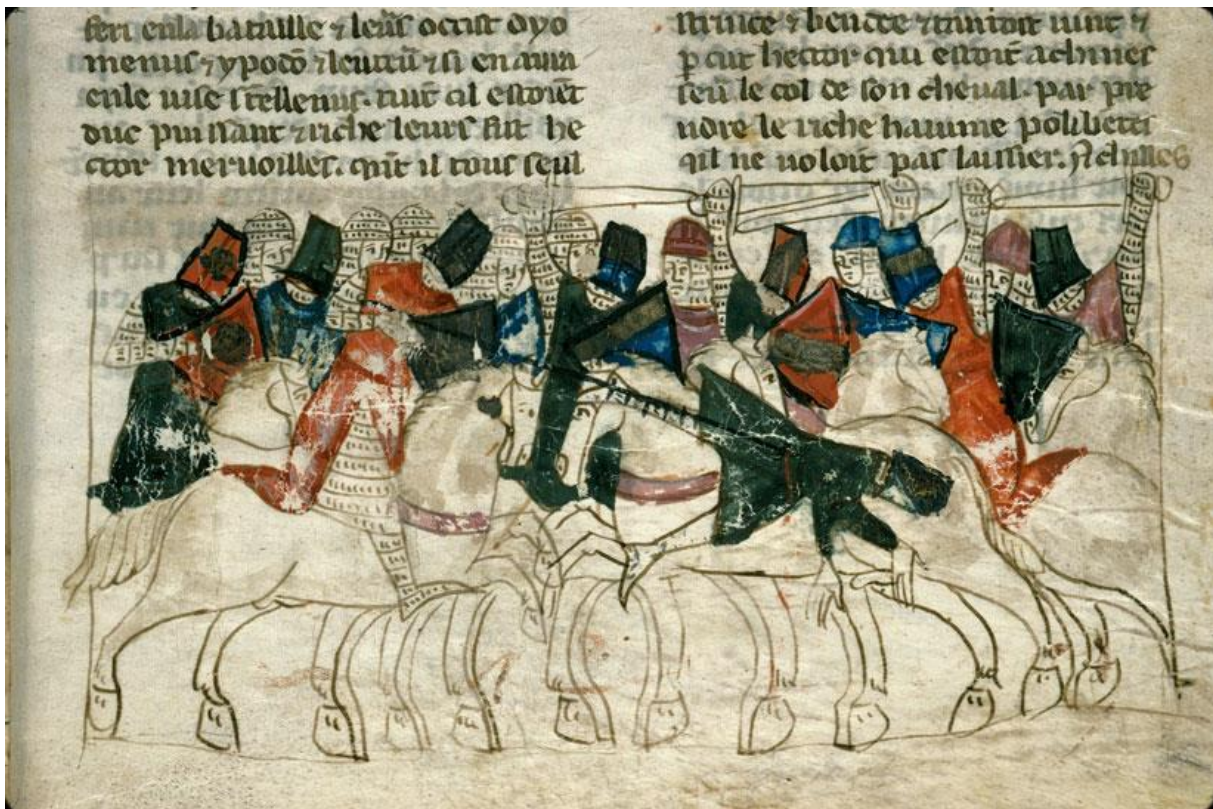 feri enla bataille ⁊ leurs occist dyo
menus ⁊ ypodõ ⁊ ⁊ si en
enle uise stellenus. tuit cil estoiẽt
duc puissant ⁊ riche leurs fist he
ctor meruoilles. qñt il tous seul
⁊ bendee ⁊ tantost uint ⁊
ꝑcut hector qui estoit achines
seũ le col de son cheual. par pre
ndre le riche haume polibetes
qil ne uoloit pas laissier. Achilles